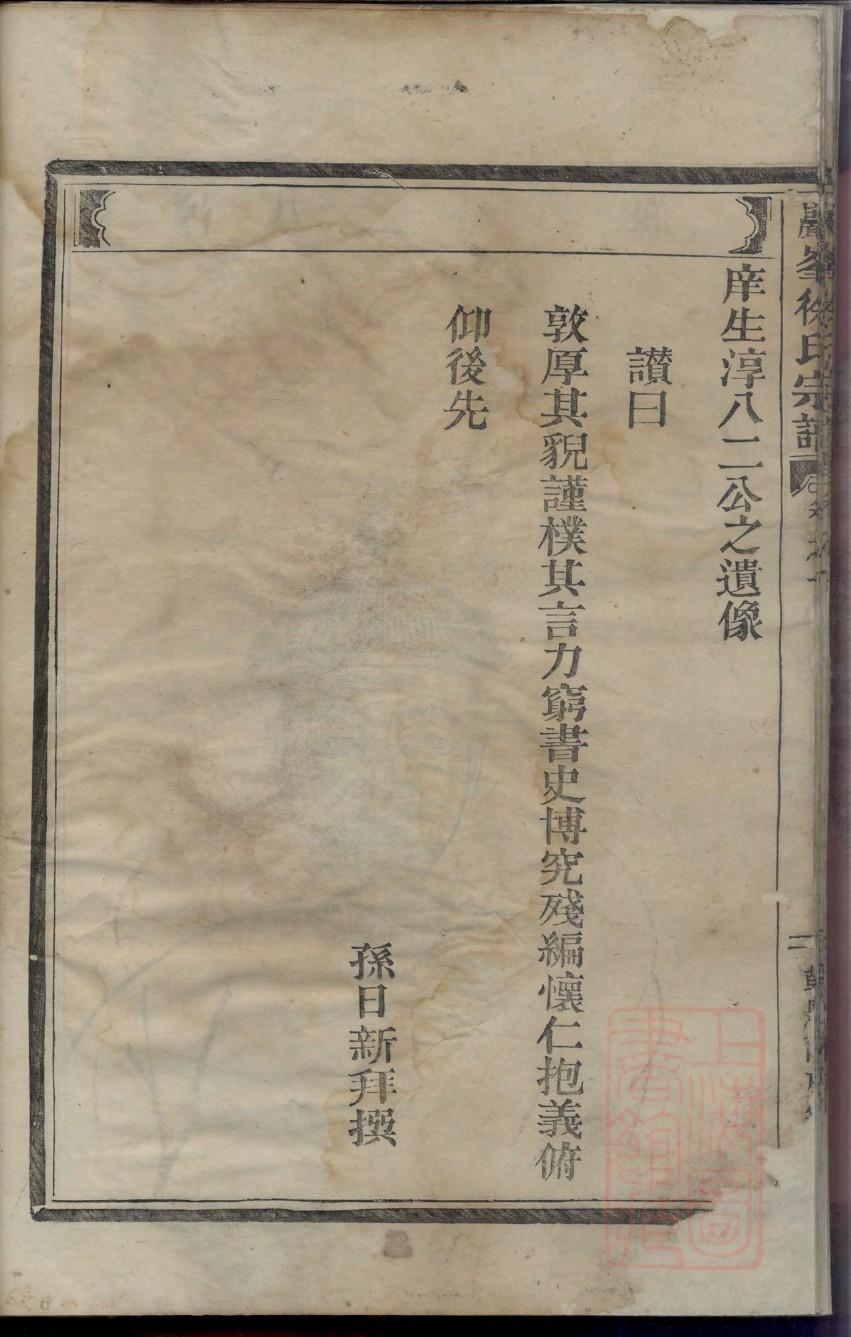 庠生淳八二公之遺像
讃曰
敦厚其貌謹樸其言力窮書史博究殘編懷仁抱義俯
仰後先
孫日新拜撰
峯徐氏宗譜
二
上海圖書館藏